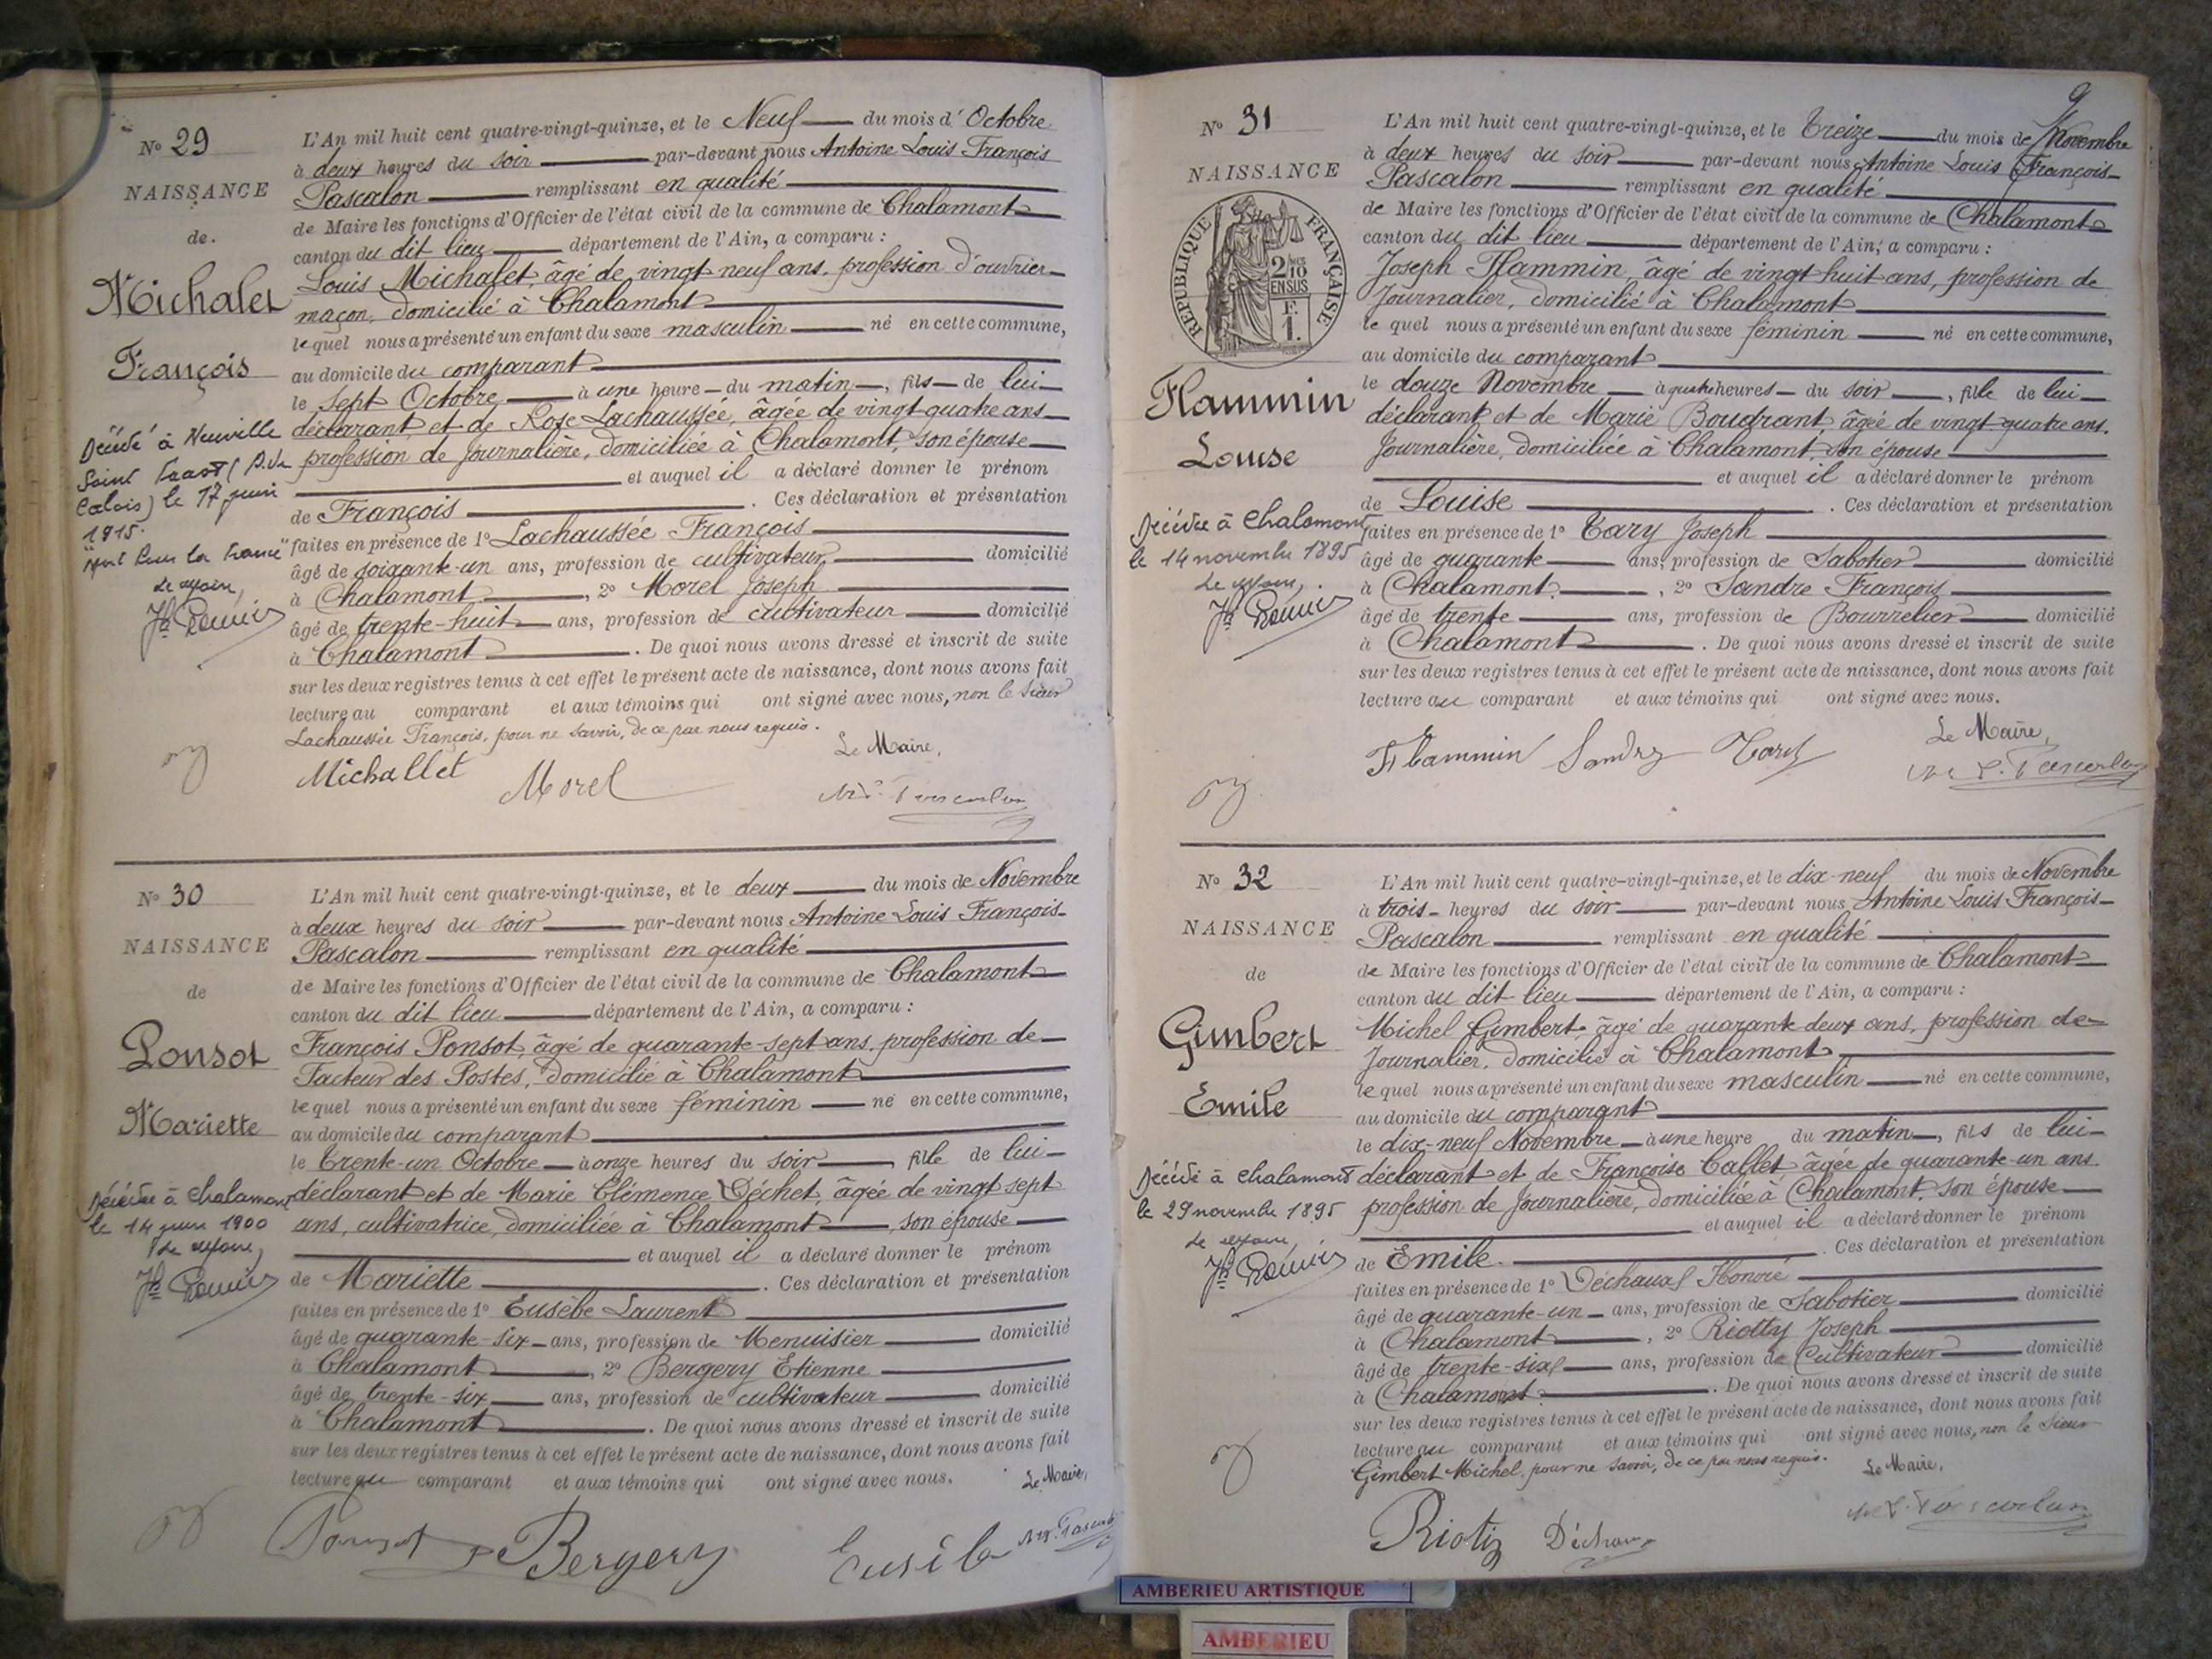 N° 29
NAISSANCE
de.
Michalet
François
Décédé à Neuville
Saint Vaast (P. de
Calais) le 17 juin
1915.
"Mort Pour la France"
Le Maire,
L'An mil huit cent quatre-vingt-quinze, et le Neuf du mois d'Octobre
à deux heures du soir par-devant nous Antoine Louis François
Pascalon remplissant en qualité
de Maire les fonctions d'Officier de l'état civil de la commune de Chalamont
canton du dit lieu département de l'Ain, a comparu :
Louis Michalet, âgé de vingt neuf ans, profession d'ouvrier
maçon, domicilié à Chalamont
lequel nous a présenté un enfant du sexe masculin né en cette commune,
au domicile du comparant
le sept Octobre à une heure du matin, fils de lui
déclarant et de Rose Lachaussée, âgée de vingt-quatre ans
profession de Journalière, domiciliée à Chalamont, son épouse
et auquel il a déclaré donner le prénom
de François . Ces déclaration et présentation
faites en présence de 1° Lachaussée François
âgé de soixante-un ans, profession de cultivateur domicilié
à Chalamont, 2° Morel Joseph
âgé de trente-huit ans, profession de cultivateur domicilié
à Chalamont . De quoi nous avons dressé et inscrit de suite
sur les deux registres tenus à cet effet le présent acte de naissance, dont nous avons fait
lecture au comparant et aux témoins qui ont signé avec nous, non le Sieur
Lachaussée François, pour ne savoir, de ce par nous requis.
Le Maire,
Michallet Morel
N° 30
NAISSANCE
de
Ponsot
Mariette
Décédée à Chalamont
le 14 juin 1900
Le Maire,
L'An mil huit cent quatre-vingt-quinze, et le deux du mois de Novembre
à deux heures du soir par-devant nous Antoine Louis François
Pascalon remplissant en qualité
de Maire les fonctions d'Officier de l'état civil de la commune de Chalamont
canton du dit lieu département de l'Ain, a comparu :
François Ponsot, âgé de quarante-sept ans, profession de
Facteur des Postes, domicilié à Chalamont
lequel nous a présenté un enfant du sexe féminin né en cette commune,
au domicile du comparant
le trente-un Octobre à onze heures du soir, fille de lui
déclarant et de Marie Clémence Déchet, âgée de vingt sept
ans, cultivatrice, domiciliée à Chalamont, son épouse
et auquel il a déclaré donner le prénom
de Mariette . Ces déclaration et présentation
faites en présence de 1° Eusèbe Laurent
âgé de quarante-six ans, profession de Menuisier domicilié
à Chalamont, 2° Bergery Etienne
âgé de trente-six ans, profession de cultivateur domicilié
à Chalamont . De quoi nous avons dressé et inscrit de suite
sur les deux registres tenus à cet effet le présent acte de naissance, dont nous avons fait
lecture au comparant et aux témoins qui ont signé avec nous.
Le Maire,
Ponsot Bergery Eusèbe
9
N° 31
NAISSANCE
REPUBLIQUE FRANÇAISE
2/10
EN SUS
F.
1.
Flammin
Louise
Décédée à Chalamont
le 14 novembre 1895
Le Maire,
L'An mil huit cent quatre-vingt-quinze, et le treize du mois de Novembre
à deux heures du soir par-devant nous Antoine Louis François
Pascalon remplissant en qualité
de Maire les fonctions d'Officier de l'état civil de la commune de Chalamont
canton du dit lieu département de l'Ain, a comparu :
Joseph Flammin, âgé de vingt huit ans, profession de
Journalier, domicilié à Chalamont
lequel nous a présenté un enfant du sexe féminin né en cette commune,
au domicile du comparant
le douze Novembre à quatre heures du soir, fille de lui
déclarant et de Marie Boudrant, âgée de vingt quatre ans.
Journalière, domiciliée à Chalamont, son épouse
et auquel il a déclaré donner le prénom
de Louise . Ces déclaration et présentation
faites en présence de 1° Tary Joseph
âgé de quarante ans, profession de Sabotier domicilié
à Chalamont, 2° Sandre François
âgé de trente ans, profession de Bourrelier domicilié
à Chalamont . De quoi nous avons dressé et inscrit de suite
sur les deux registres tenus à cet effet le présent acte de naissance, dont nous avons fait
lecture au comparant et aux témoins qui ont signé avec nous.
Le Maire,
Flammin
N° 32
NAISSANCE
de
Gimbert
Emile
Décédé à Chalamont
le 29 novembre 1895
Le Maire,
L'An mil huit cent quatre-vingt-quinze, et le dix-neuf du mois de Novembre
à trois heures du soir par-devant nous Antoine Louis François
Pascalon remplissant en qualité
de Maire les fonctions d'Officier de l'état civil de la commune de Chalamont
canton du dit lieu département de l'Ain, a comparu :
Michel Gimbert, âgé de quarante deux ans, profession de
Journalier, domicilié à Chalamont
lequel nous a présenté un enfant du sexe masculin né en cette commune,
au domicile du comparant
le dix-neuf Novembre à une heure du matin, fils de lui
déclarant et de Françoise Callet âgée de quarante-un ans.
profession de Journalière, domiciliée à Chalamont, son épouse
et auquel il a déclaré donner le prénom
de Emile. . Ces déclaration et présentation
faites en présence de 1° Déchaux Honoré
âgé de quarante-un ans, profession de Sabotier domicilié
à Chalamont, 2° Riotty Joseph
âgé de trente-six ans, profession de Cultivateur domicilié
à Chalamont . De quoi nous avons dressé et inscrit de suite
sur les deux registres tenus à cet effet le présent acte de naissance, dont nous avons fait
lecture au comparant et aux témoins qui ont signé avec nous, non le Sieur
Gimbert Michel, pour ne savoir, de ce par nous requis.
Le Maire,
AMBERIEU ARTISTIQUE
AMBERIEU